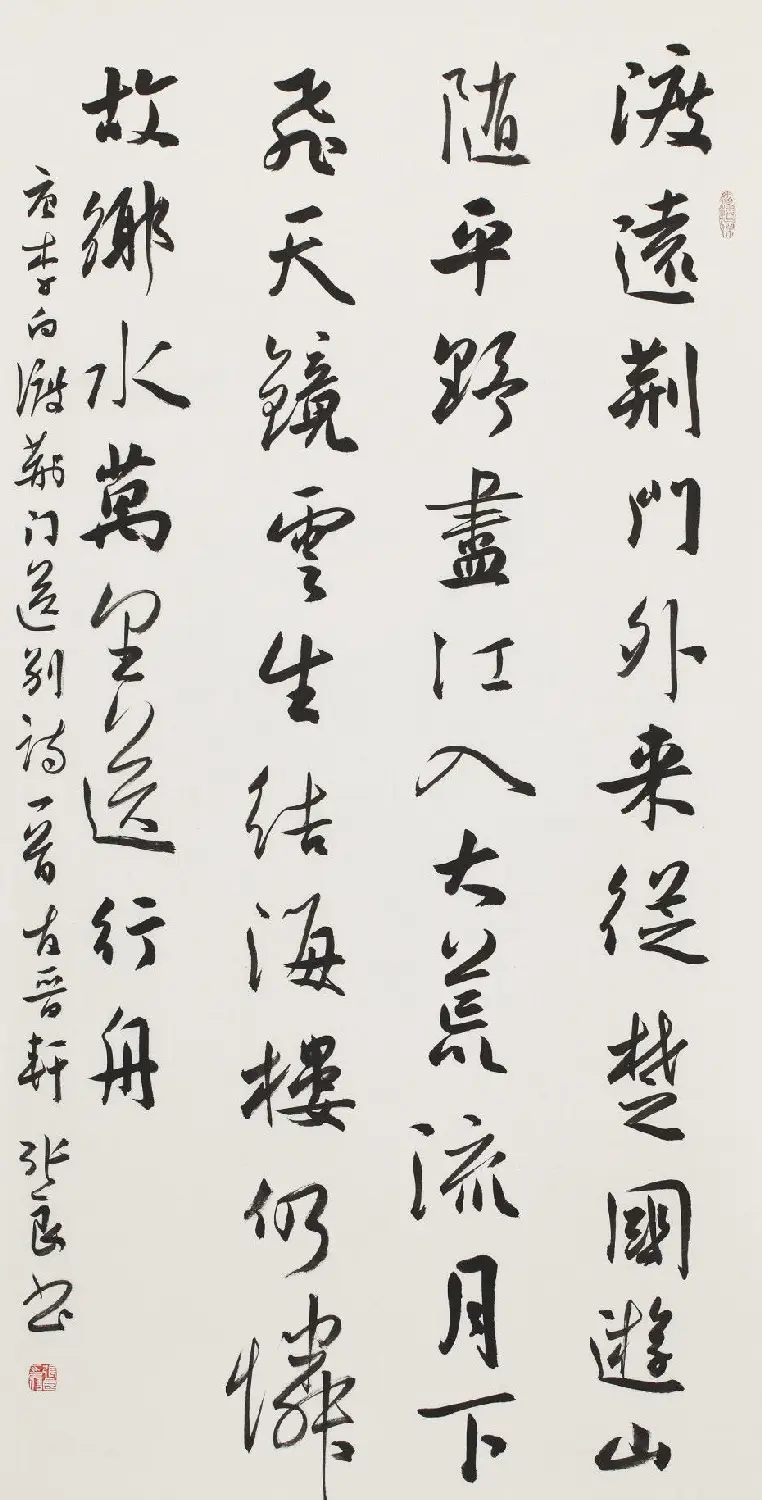 渡遠荊門外来從楚國遊山
随平野盡江入大荒流月下
飛天鏡雲生结海樓仍憐
故鄉水萬里送行舟
唐李白渡荆门送别诗一首古晋軒张良书